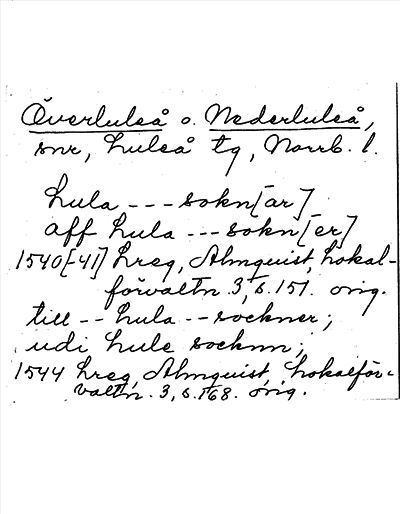 Överluleå o. Nederluleå,
snr, Luleå tg, Norrb. l.
Lula --- sokn[ar]
aff Lula --- sokn[er]
1540[-41] Lreg, Almquist, Lokal-
förvaltn. 3, s. 151. orig.
till -- Lula -- sockner;
udi Lule socknn;
1544 Lreg, Almquist, Lokalför-
valtn. 3, s. 168. orig.